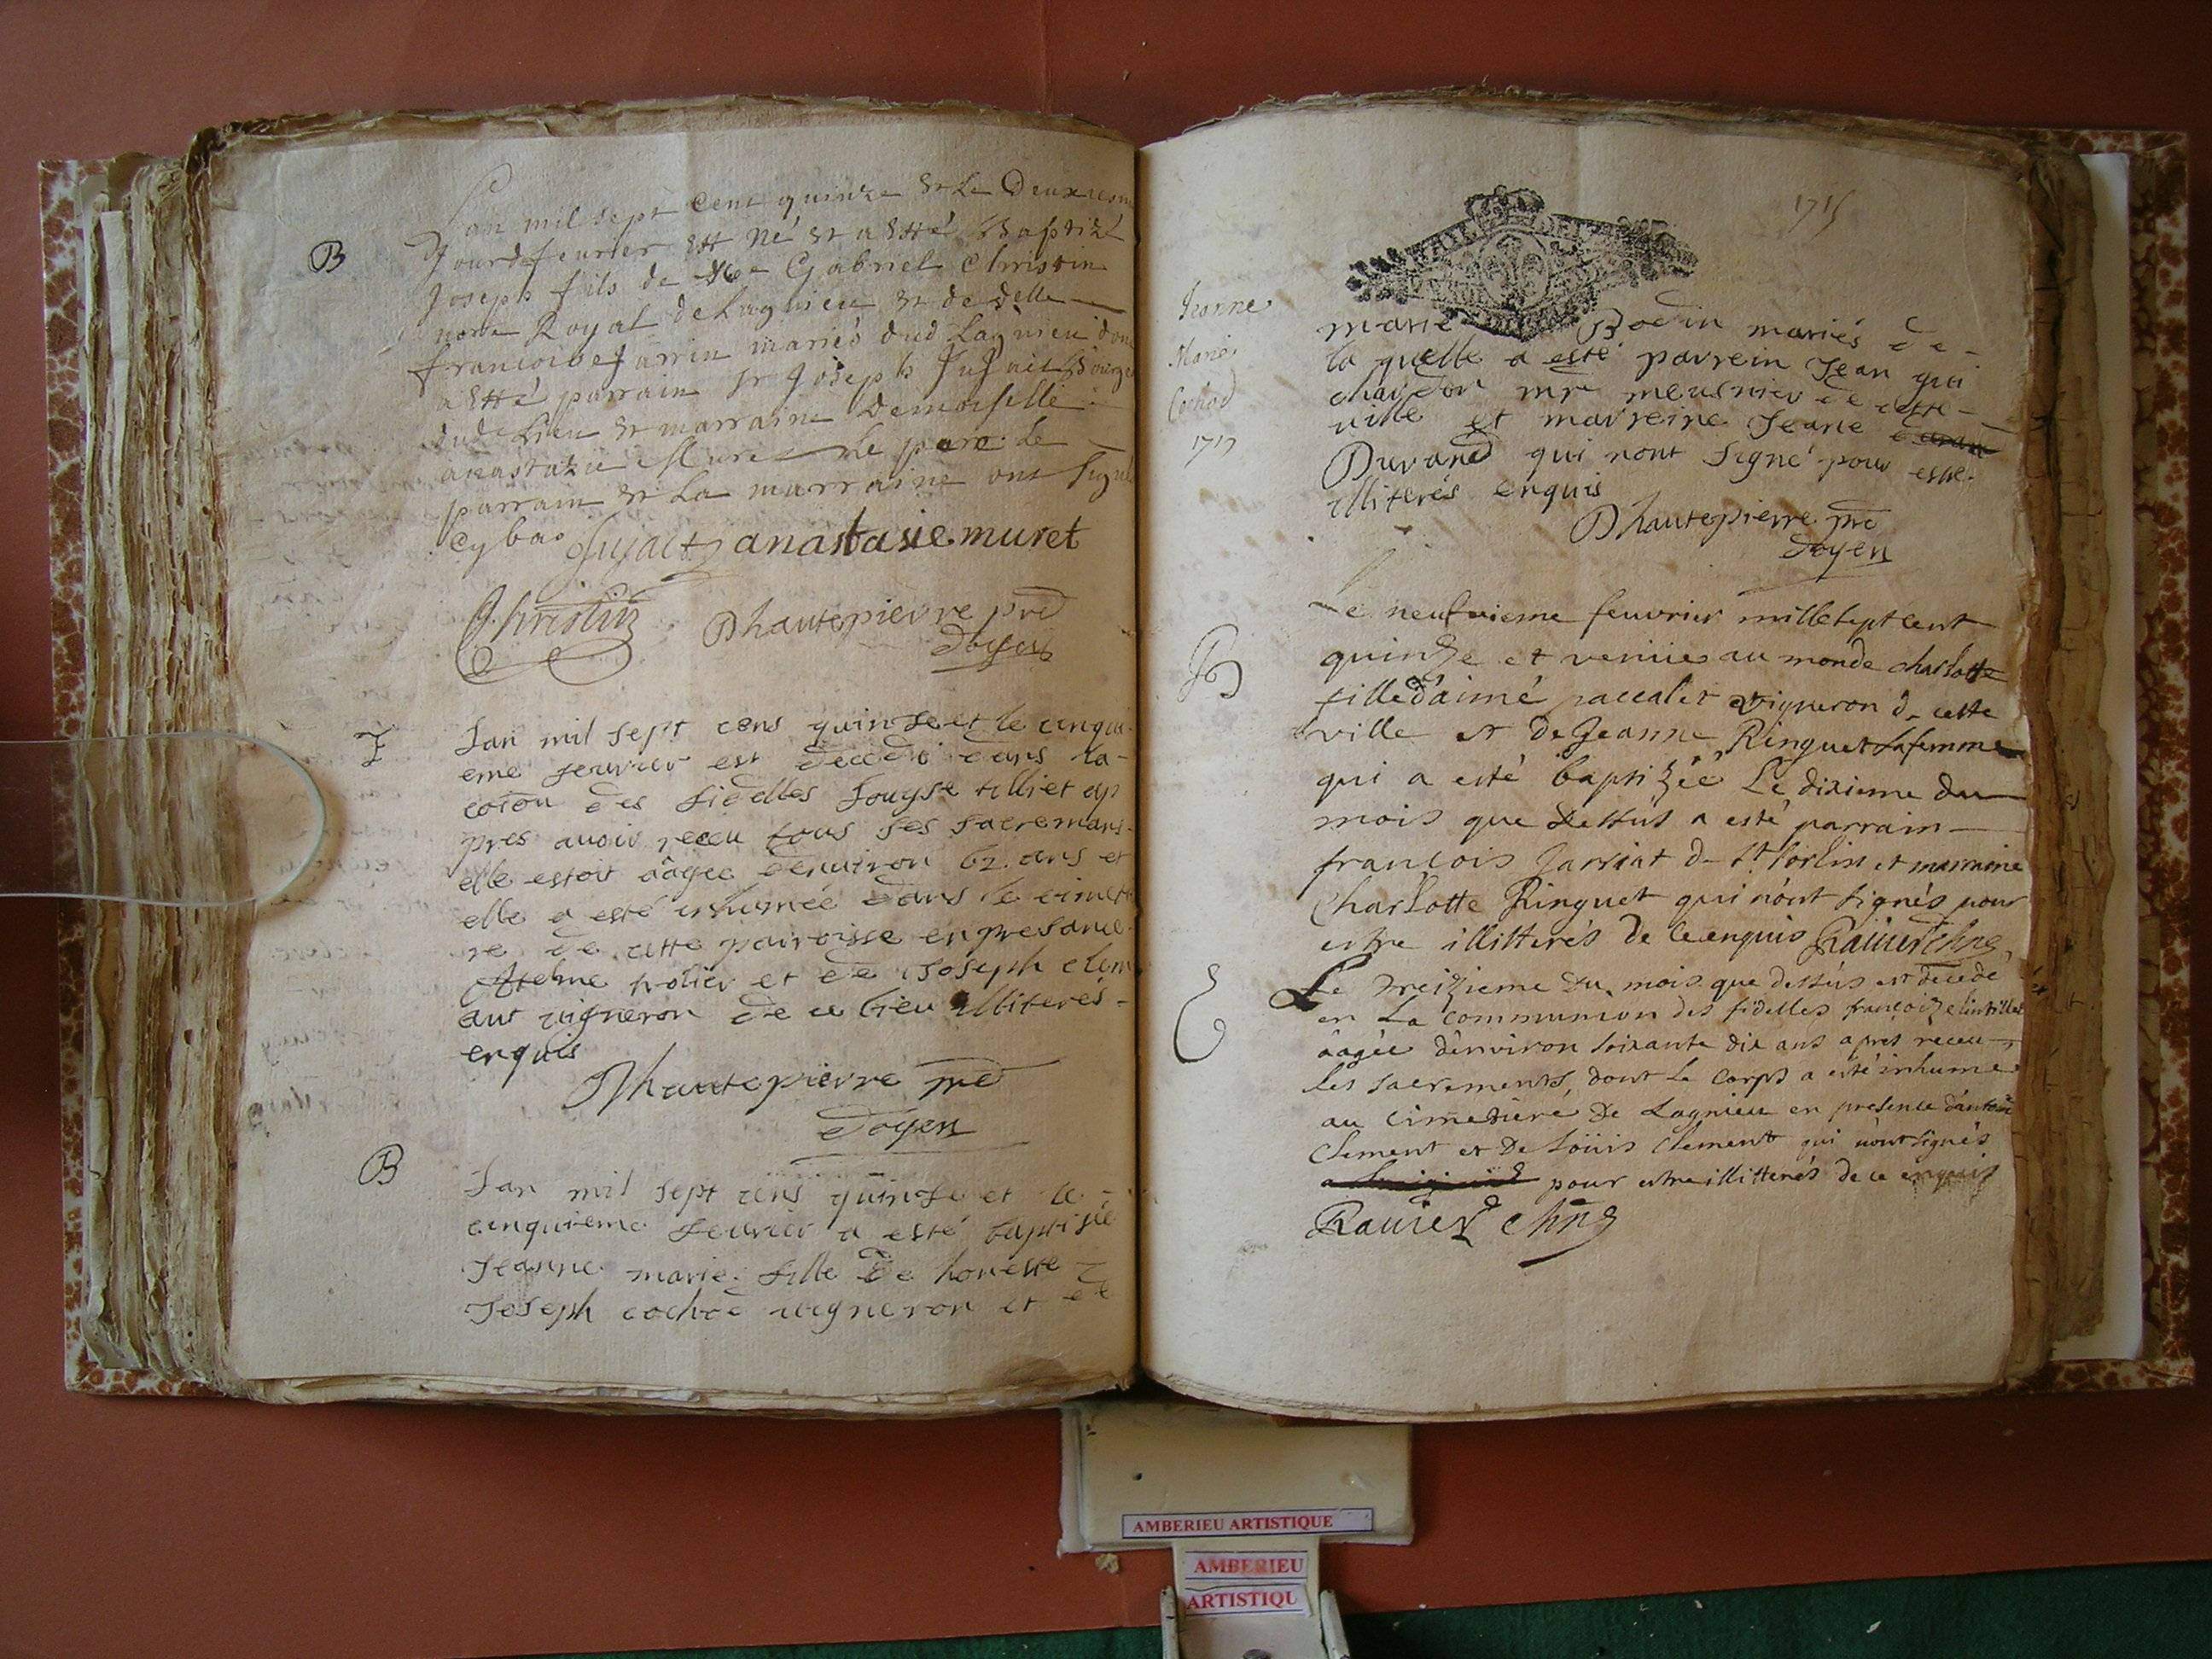 B
Lan mil sept Cent quinze & Le Deuxiesme
Jour de feurier Est Né & a Esté Baptizé
Joseph fils de Me Gabriel Christin
nore Royal de Lagnieu & de delle
francoise Jarrin mariés dud Lagnieu dont
a Esté parrain Sr Joseph Jujait Bourgeois
dud Lieu & marraine Demoiselle
anastazie Muret Le pere Le
parrain & La marraine ont Signé
Cy bas Jujait anastasie muret
Christin Dhautepierre pre
Doyen
Lan mil sept cens quinse et le cinqui-
eme feuvrier est decedé dans la
coion des fidelles Louyse tilliet ap
pres avoir receu tous ses sacremans
elle estoit aâgee denviron 62 ans et
elle a esté inhumée dans le cimeti
re de cette parroisse en presance
Atelme trolier et de Joseph clem
ant vigneron de ce lieu illiterés
enquis
Dhautepierre pre
Doyen
B
Lan mil sept cens quinse et le
cinquieme feuvrier a esté baptisée
Jeanne marie fille de honeste
Joseph cochod vigneron et de
1715
Jeanne
Marie
Cochod
1715
marie Bodin mariés de
la quelle a esté parrein Jean gui
chardon mr meusnier de cette
ville et marreine Jeane
Durand qui nont signé pour estre
illiterés enquis
Dhautepierre pre
Doyen
B
Le neufvieme feuvrier mille sept cent
quinze et venüe au monde charlotte
fille d'aimé paccalet vigneron de cette
ville et de Jeanne Ringuet sa femme
qui a esté baptizée Le dixieme du
mois que dessus a esté parrain
francois Jarriat de St Sorlin et marraine
Charlotte Ringuet qui n'ont signés pour
estre illitterés de ce enquis Ravier chne
Le treizieme du mois que dessus est decede
en La communion des fidelles francoize
aâgée d'environ soixante dix ans apres receu
les sacrements, dont le corps a esté inhumé
au cimetiere de Lagnieu en presence d'antoine
Clement et de Loüis Clement qui n'ont signés
pour estre illitterés de ce enquis
Ravier chne
AMBERIEU ARTISTIQUE
AMBERIEU
ARTISTIQU